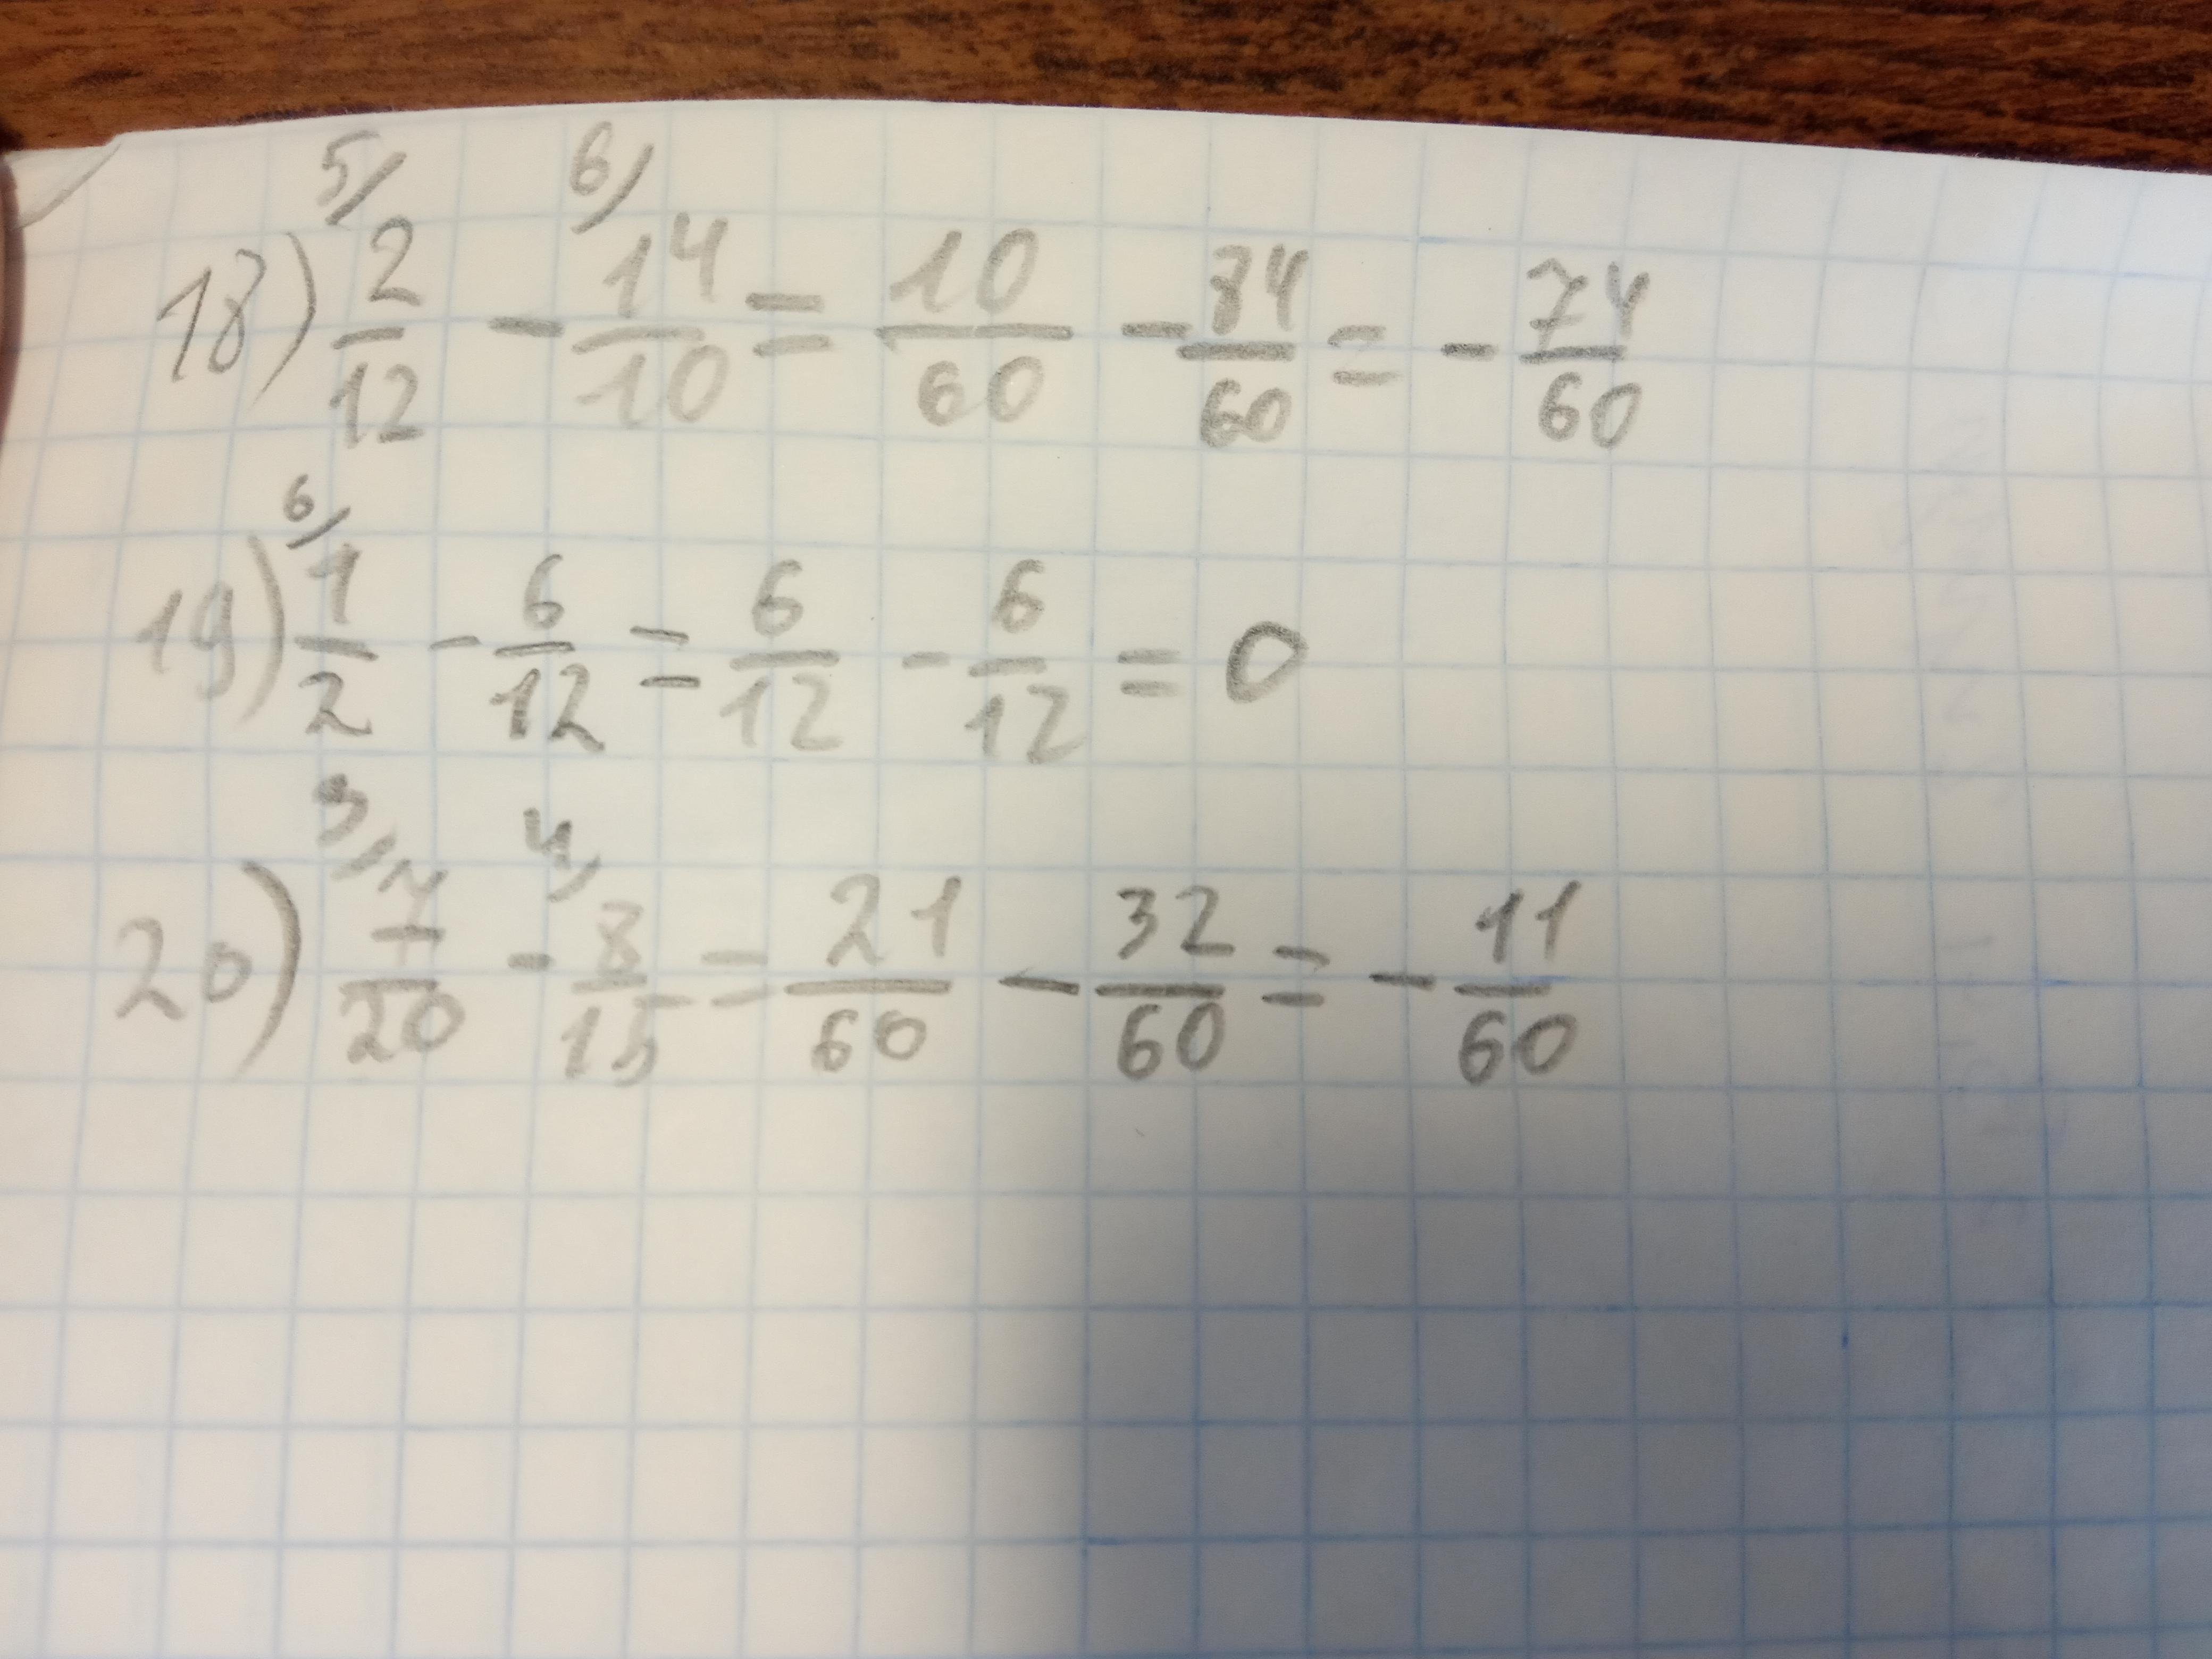 18) 5/ 2/12 - 6/ 14/10 = 10/60 - 84/60 = - 74/60
19) 6/ 1/2 - 6/12 = 6/12 - 6/12 = 0
20) 3/ 7/20 - 4/ 8/15 = 21/60 - 32/60 = - 11/60